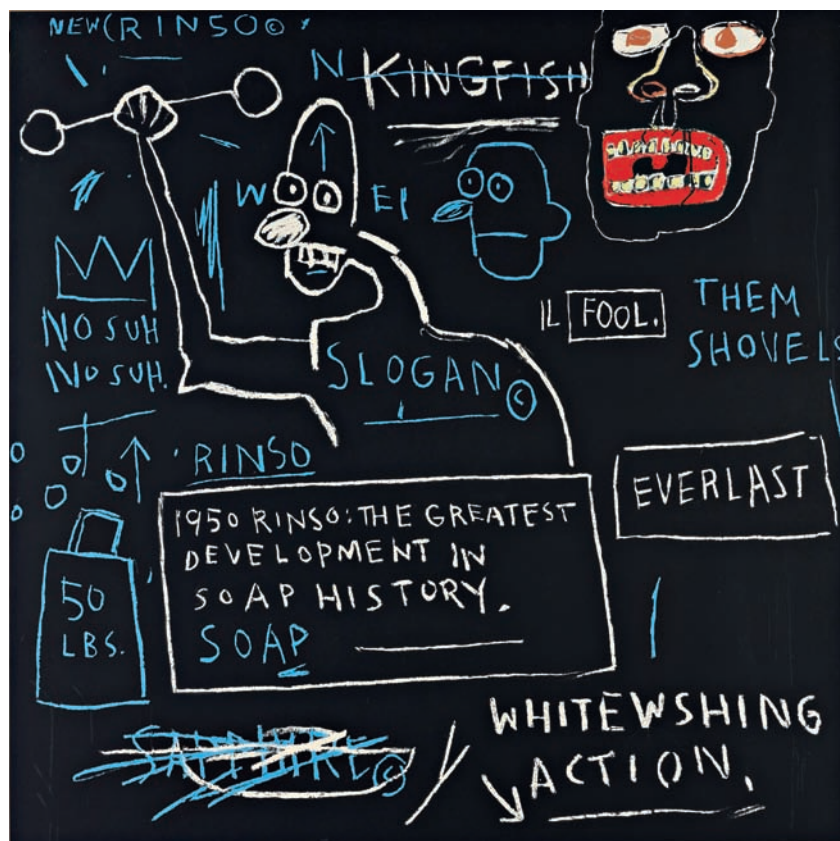 NEW(RINSO©
N KINGFISH
W
EI
NO SUH
NO SUH.
IL FOOL.
THEM
SHOVELS
SLOGAN©
RINSO
EVERLAST
1950 RINSO: THE GREATEST
DEVELOPMENT IN
SOAP HISTORY.
SOAP
50
LBS.
SAPPHIRE©
WHITEWSHING
ACTION.